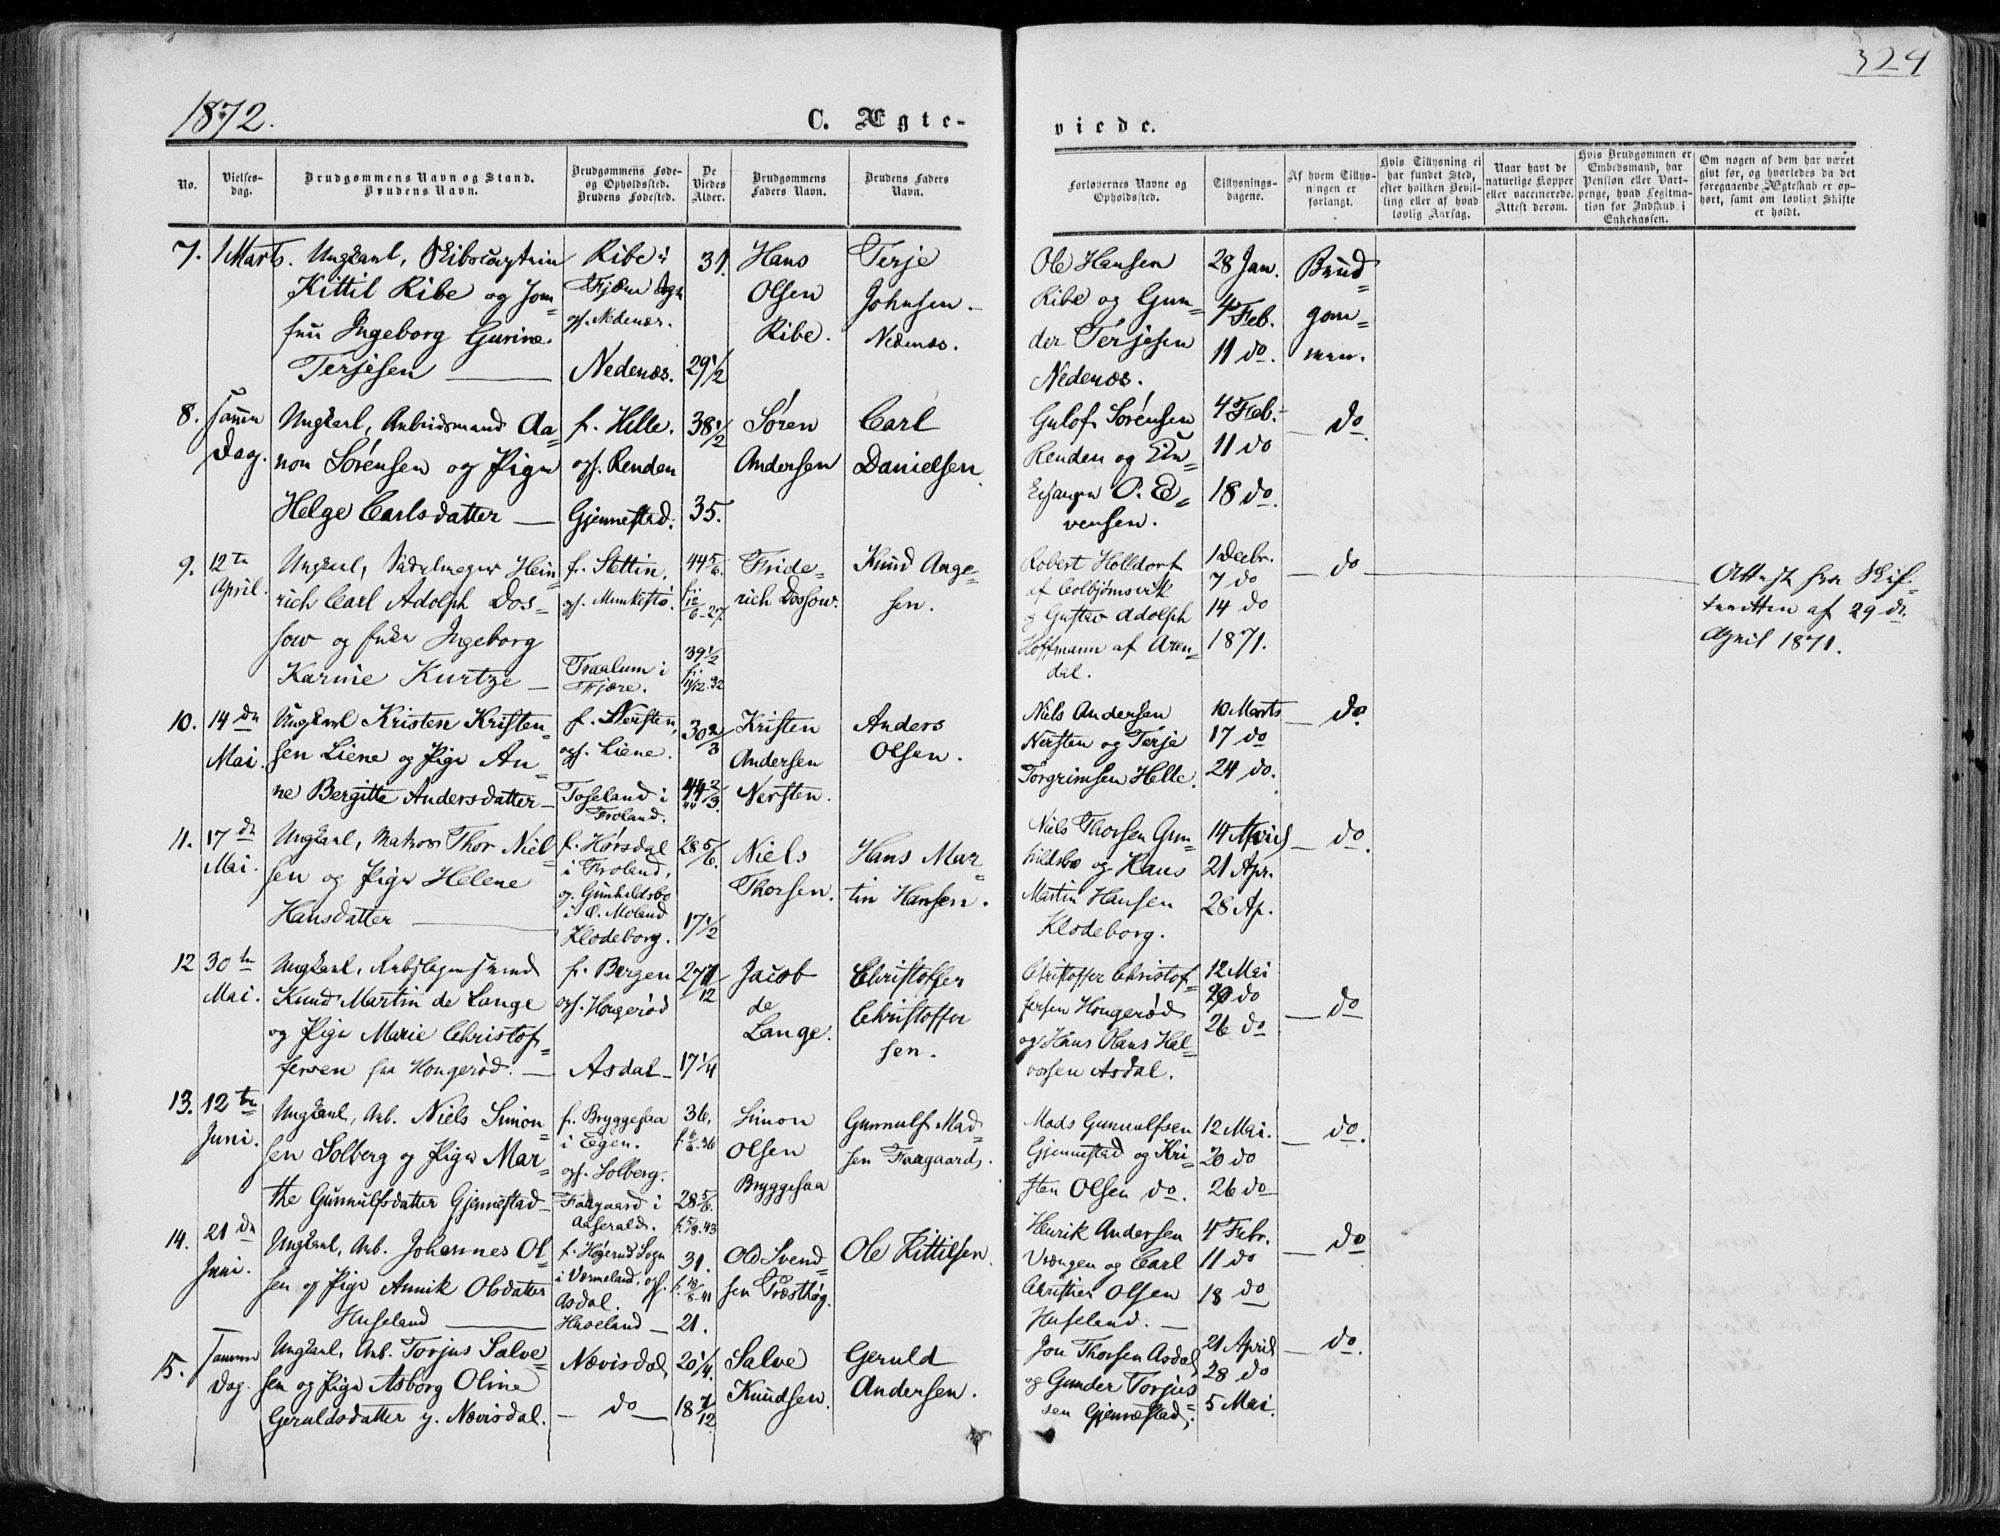 324
1872.
C. Ægte-
viede.
No.
Vielses-
dag.
Brudgommens Navn og Stand.
Brudens Navn.
Brudgommens Føde-
og Opholdssted.
Brudens Fødested.
De
Viedes
Alder.
Brudgommens
Faders Navn.
Brudens Faders
Navn.
Forlovernes Navne og
Opholdssted.
Tillysnings-
dagene.
Af hvem Tillys-
ningen er
forlangt.
Hvis Tillysning ei
har fundet Sted,
efter hvilken Bevil-
ling eller af hvad
lovlig Aarsag.
Naar havt de
naturlige Kopper
eller vaccinerede.
Attest derom.
Hvis Brudgommen er
Embedsmand, har
Pension eller Vart-
penge, hvad Legitima-
tion for Indskud i
Enkekassen.
Om nogen af dem har været
givt før, og hvorledes da det
foregaaende Ægteskab er op-
hørt, samt om lovligt Skifte
er holdt.
7.
1 Marts.
Ungkarl, Skibscaptein
Kittil Ribe og Jom-
fru Ingeborg Gurine
Terjesen
Ribe i
Fjære Sogn
of. Nedenæs.
Nedenæs.
31.
29 1/2
Hans
Olsen
Ribe.
Terje
Johnsen
Nedenæs.
Ole Hansen
Ribe og Gun-
der Terjesen
Nedenæs.
28 Jan.
4 Feb.
11 do.
Brud-
gom-
men.
8.
Samme
Dag.
Ungkarl, Arbeidsmand Aa-
non Sørensen og Pige
Helge Carlsdatter
f. Hille.
of. Renden
Gjennestad.
38 1/2
35.
Søren
Andersen
Carl
Danielsen.
Gulof Sørensen
Renden og
O. Ed-
vensen.
4 Feb.
11 do
18 do.
do.
9.
12te
April.
Ungkarl, Sadelmager Hein-
rich Carl Adolph Dos-
sow og Enke Ingeborg
Karine Kurtze
f. Stettin.
of. Munkesto.
Traalum i
Fjære.
44 5/6.
f. 12/6-27.
39 1/2
f. 11/12.32
Fride-
rich Dossow.
Knud Aage-
sen.
Robert Holldorf
af Colbjørnsvik
og Gustav Adolph
Hoffmann af Aren-
dal.
1 Decbr.
7 do
14 do
1871.
do
Attest fra Skif-
teretten af 29 de
April 1871.
10.
14de
Mai.
Ungkarl Kristen Kristen-
sen Liene og Pige An-
ne Bergitte Andersdatter
f. Nersten,
of. Liene.
Toseland i
Froland.
30 2/3
44 2/3.
Kristen
Andersen
Nersten.
Anders
Olsen.
Niels Andersen
Nersten og Terje
Torgrimsen Helle.
10 Marts
17 do
24 do.
do
11.
17 de
Mai.
Ungkarl, Matros Thor Niel-
sen og Pige Helene
Hansdatter
f. Hørsdal
i Froland,
og Gunheldsbo
i Ø. Moland
Klodeborg.
28 5/6.
17 1/2
Niels
Thorsen.
Hans Mar-
tin Hansen.
Niels Thorsen Gun-
hildsbo og Hans
Martin Hansen
Klodeborg.
14 April
21 Apr.
28 Ap.
do.
12
30te
Mai.
Ungkarl, Rebslagersvend
Knud Martin de Lange
og Pige Marie Christof-
fersen fra Hongerød.
fr. Bergen
of. Hongerød
Asdal
27 1/12
17 1/4
Jacob
de
Lange.
Christoffer
Christoffer
sen.
Christoffer Christof-
fersen Hongerød
og Hans Hans Hal-
vorsen Asdal.
12 Mai
20 do
26 do
do
13.
12te
Juni.
Ungkarl, Arb. Niels Simon-
sen Solberg og Pige Mar-
the Gunnulfsdatter Gjennestad
f. Bryggesaa
i Egen.
of. Solberg.
Faagaard i
Aaserald.
36.
f. 6/6-36
28 5/6.
f. 5/8.43
Simon
Olsen
Bryggesaa
Gunnulf Mad-
sen Faagaard.
Mads Gunnulfsen
Gjennestad og Kri-
sten Olsen do.
12 Mai.
20 do
26 do
do.
14.
21 de
Juni.
Ungkarl, Arb. Johannes Ol-
sen og Pige Annik Olsdatter
Huseland
f. Høgerud Sogn
i Værmeland, of.
Asdal.
Huseland
31.
f. 18/8-41
21.
Ole Svend-
sen Præsthøg.
Ole Kittilsen.
Henrik Andersen
Vrængen og Carl
Christian Olsen
Huseland.
4 Febr.
11 do
18 do
do
15.
Samme
Dag.
Ungkarl, Arb. Torjus Salve-
sen og Pige Asborg Oline
Geruldsdatter y. Nævisdal.
Nævisdal
do
20 1/4.
18 7/12.
Salve
Knudsen.
Geruld
Andersen.
Jon Thorsen Asdal
og Gunder Torjus-
sen Gjennestad.
21 April
28 do
5 Mai.
do.